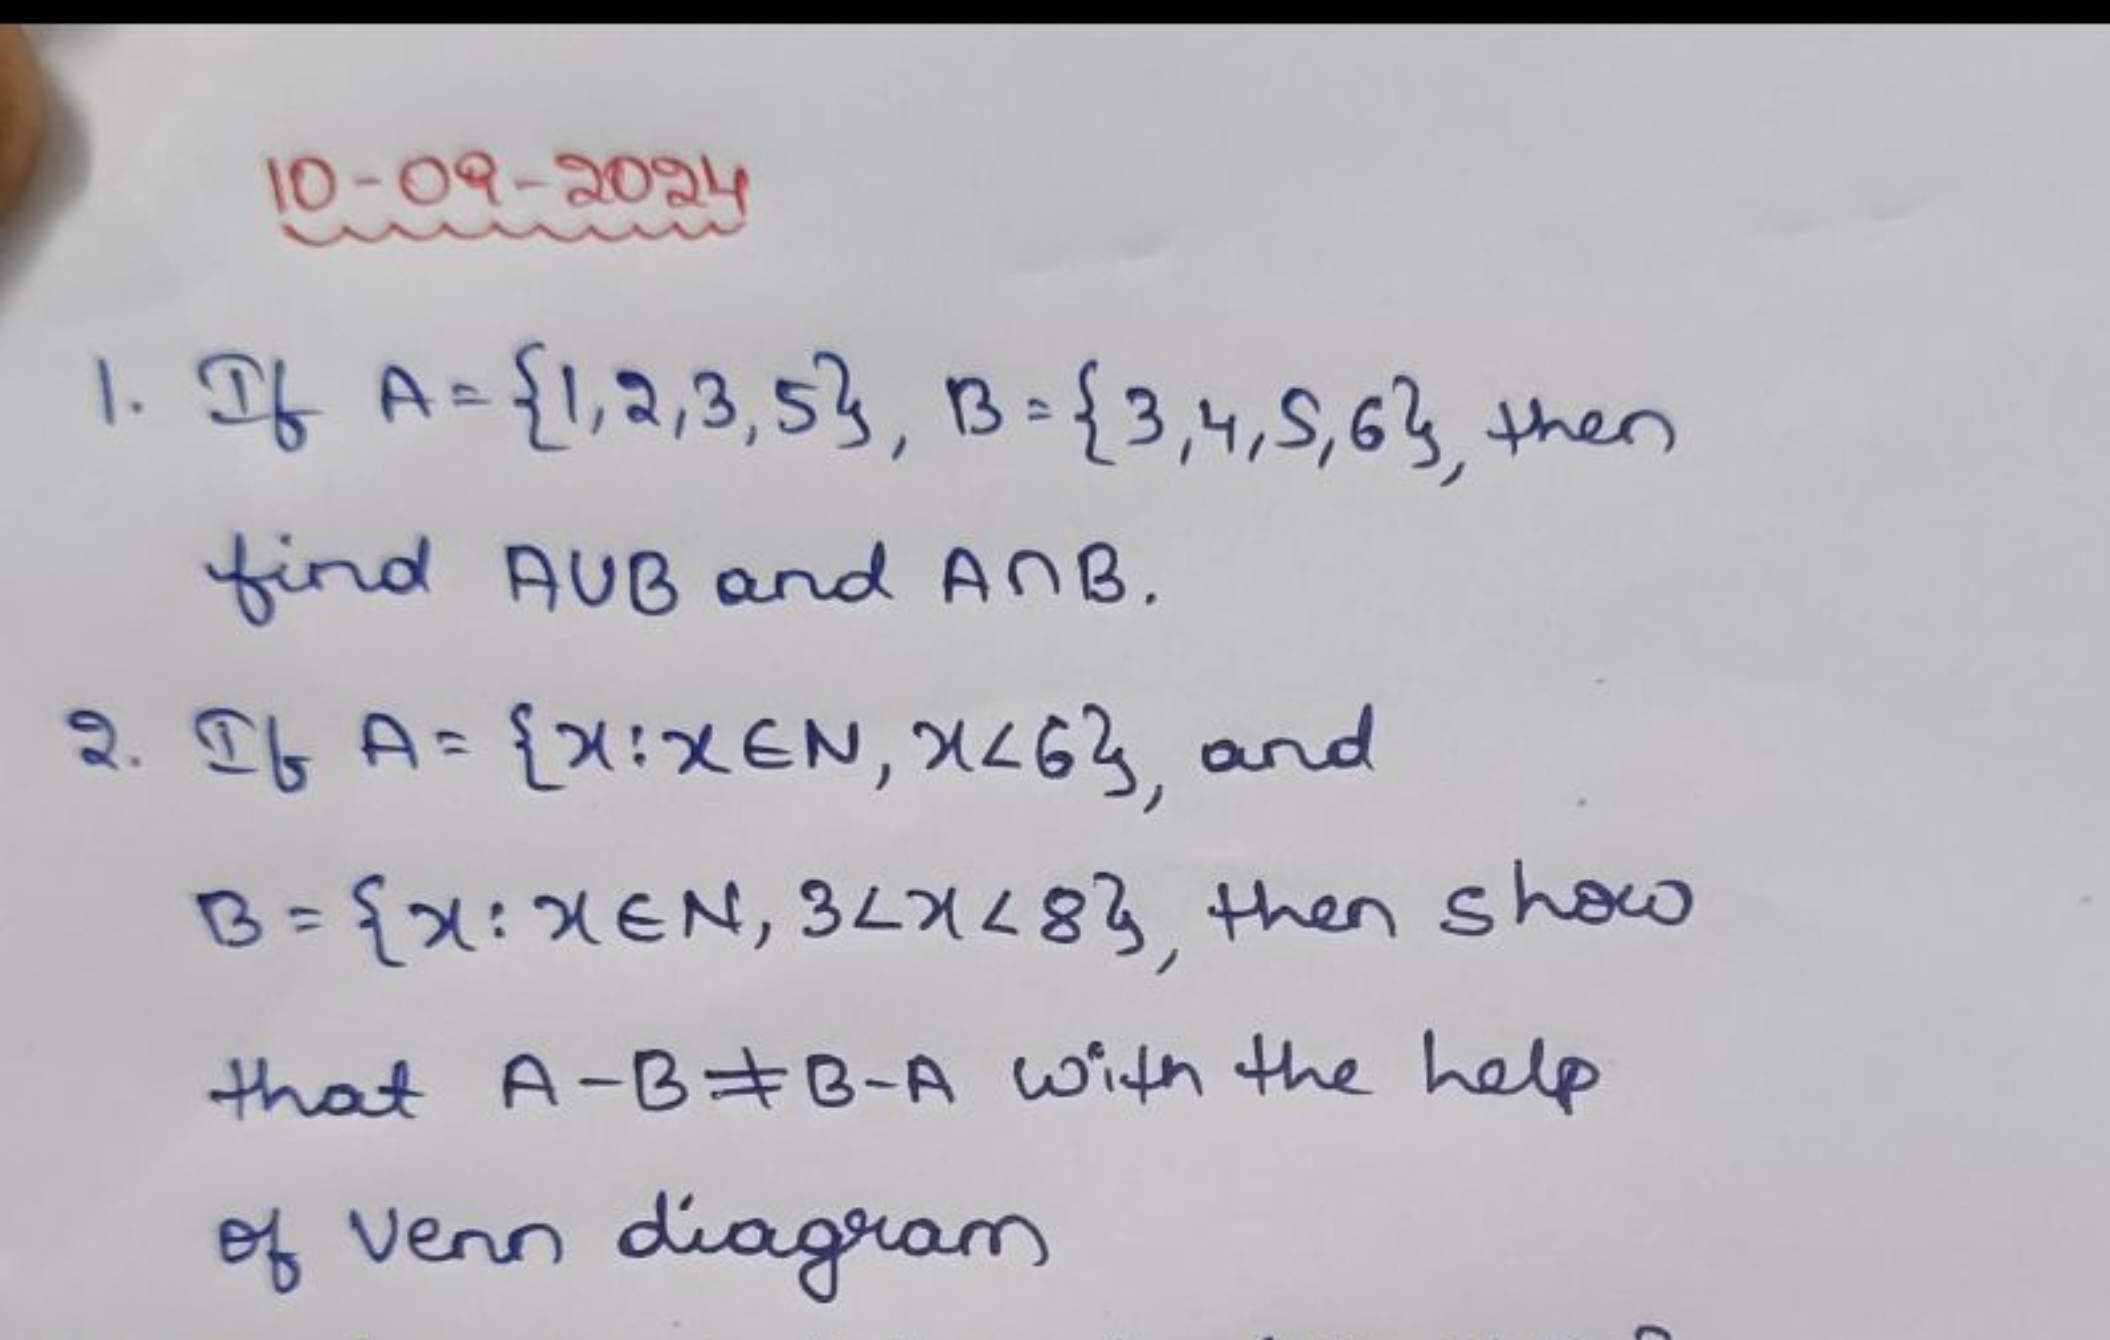 10-09-2024
1. If A={1,2,3,5}, B={3,4,5,6}, then
find A∪B and A∩B.
2. If A= {x:x∈N, x<6}, and
B={x:x∈N, 3<x<8}, then show
that A-B≠B-A with the help
of Venn diagram